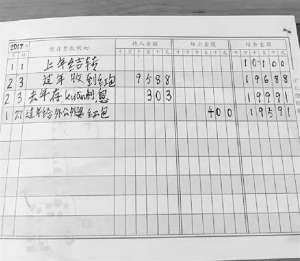 2017年 收入金额 付出金额 结存金额
1 1 上年结转 10100
2 3 过年收到红包 9588 19688
2 3 去年存kuan利息 303 19991
1 21 过年给外公外婆红包 400 19591